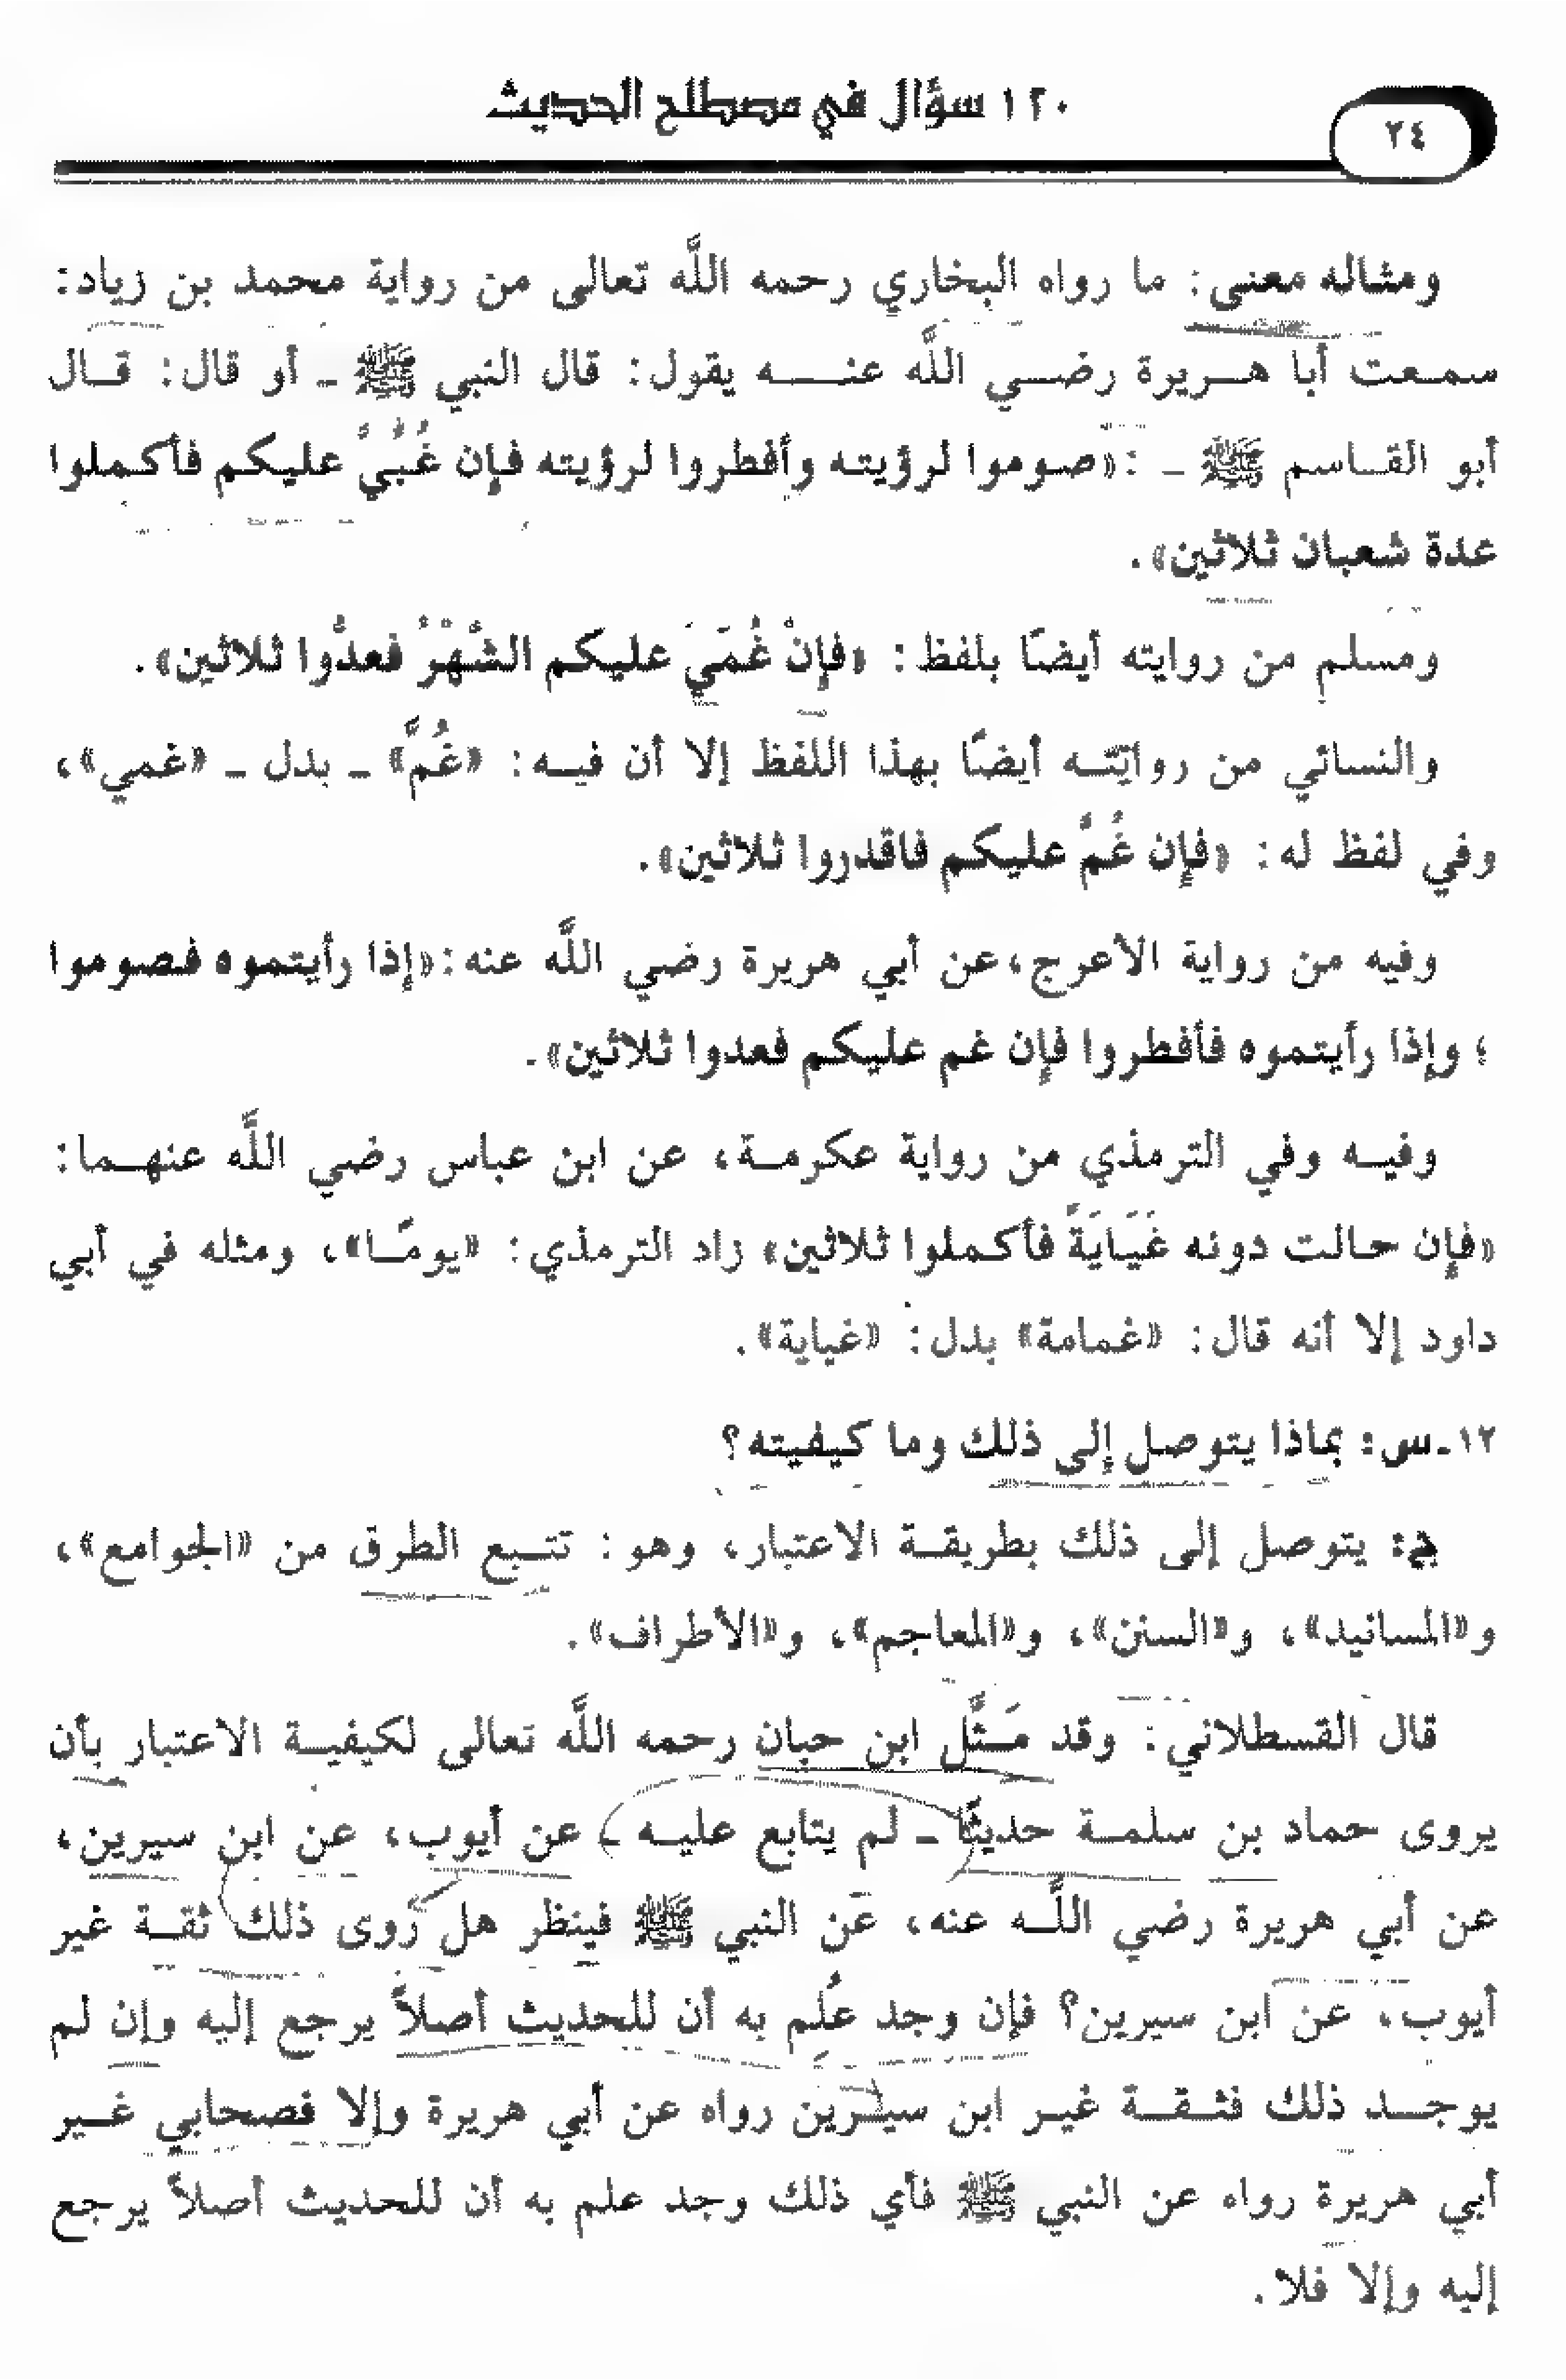 ١٢٠ سؤال في مصطلح الحديث
٢٤
ومثاله معنى: ما رواه البخاري رحمه اللَّه تعالى من رواية محمد بن زياد:
سمعت أبا هريرة رضي اللَّه عنه يقول: قال النبي ﷺ ـ أو قال: قال
أبو القاسم ﷺ ـ : «صوموا لرؤيته وأفطروا لرؤيته فإن غُبِّيَ عليكم فأكملوا
عدة شعبان ثلاثين».
ومسلم من روايته أيضًا بلفظ: «فإِنْ غُمِّيَ عليكم الشَّهْرُ فعدُّوا ثلاثين».
والنسائي من روايته أيضًا بهذا اللفظ إلا أن فيه: «غُمَّ» ـ بدل ـ «غمي»،
وفي لفظ له: «فإن غُمَّ عليكم فاقدروا ثلاثين».
وفيه من رواية الأعرج،عن أبي هريرة رضي اللَّه عنه:«إذا رأيتموه فصوموا
؛ وإذا رأيتموه فأفطروا فإن غم عليكم فعدوا ثلاثين».
وفيه وفي الترمذي من رواية عكرمة، عن ابن عباس رضي اللَّه عنهما:
«فإن حالت دونه غَيَايَةً فأكملوا ثلاثين» زاد الترمذي: «يومًا»، ومثله في أبي
داود إلا أنه قال: «غمامة» بدل: «غياية».
١٢ـ س: بماذا يتوصل إلى ذلك وما كيفيته؟
ج: يتوصل إلى ذلك بطريقة الاعتبار، وهو: تتبع الطرق من «الجوامع»،
و«المسانيد»، و«السنن»، و«المعاجم»، و«الأطراف».
قال القسطلاني: وقد مَثَّل ابن حبان رحمه اللَّه تعالى لكيفية الاعتبار بأن
يروى حماد بن سلمة حديثًا ـ لم يتابع عليه ـ عن أيوب، عن ابن سيرين،
عن أبي هريرة رضي اللَّه عنه، عن النبي ﷺ فينظر هل روى ذلك ثقة غير
أيوب، عن ابن سيرين؟ فإن وجد عُلِم به أن للحديث أصلاً يرجع إليه وإن لم
يوجد ذلك فثقة غير ابن سيرين رواه عن أبي هريرة وإلا فصحابي غير
أبي هريرة رواه عن النبي ﷺ فأي ذلك وجد علم به أن للحديث أصلاً يرجع
إليه وإلا فلا.